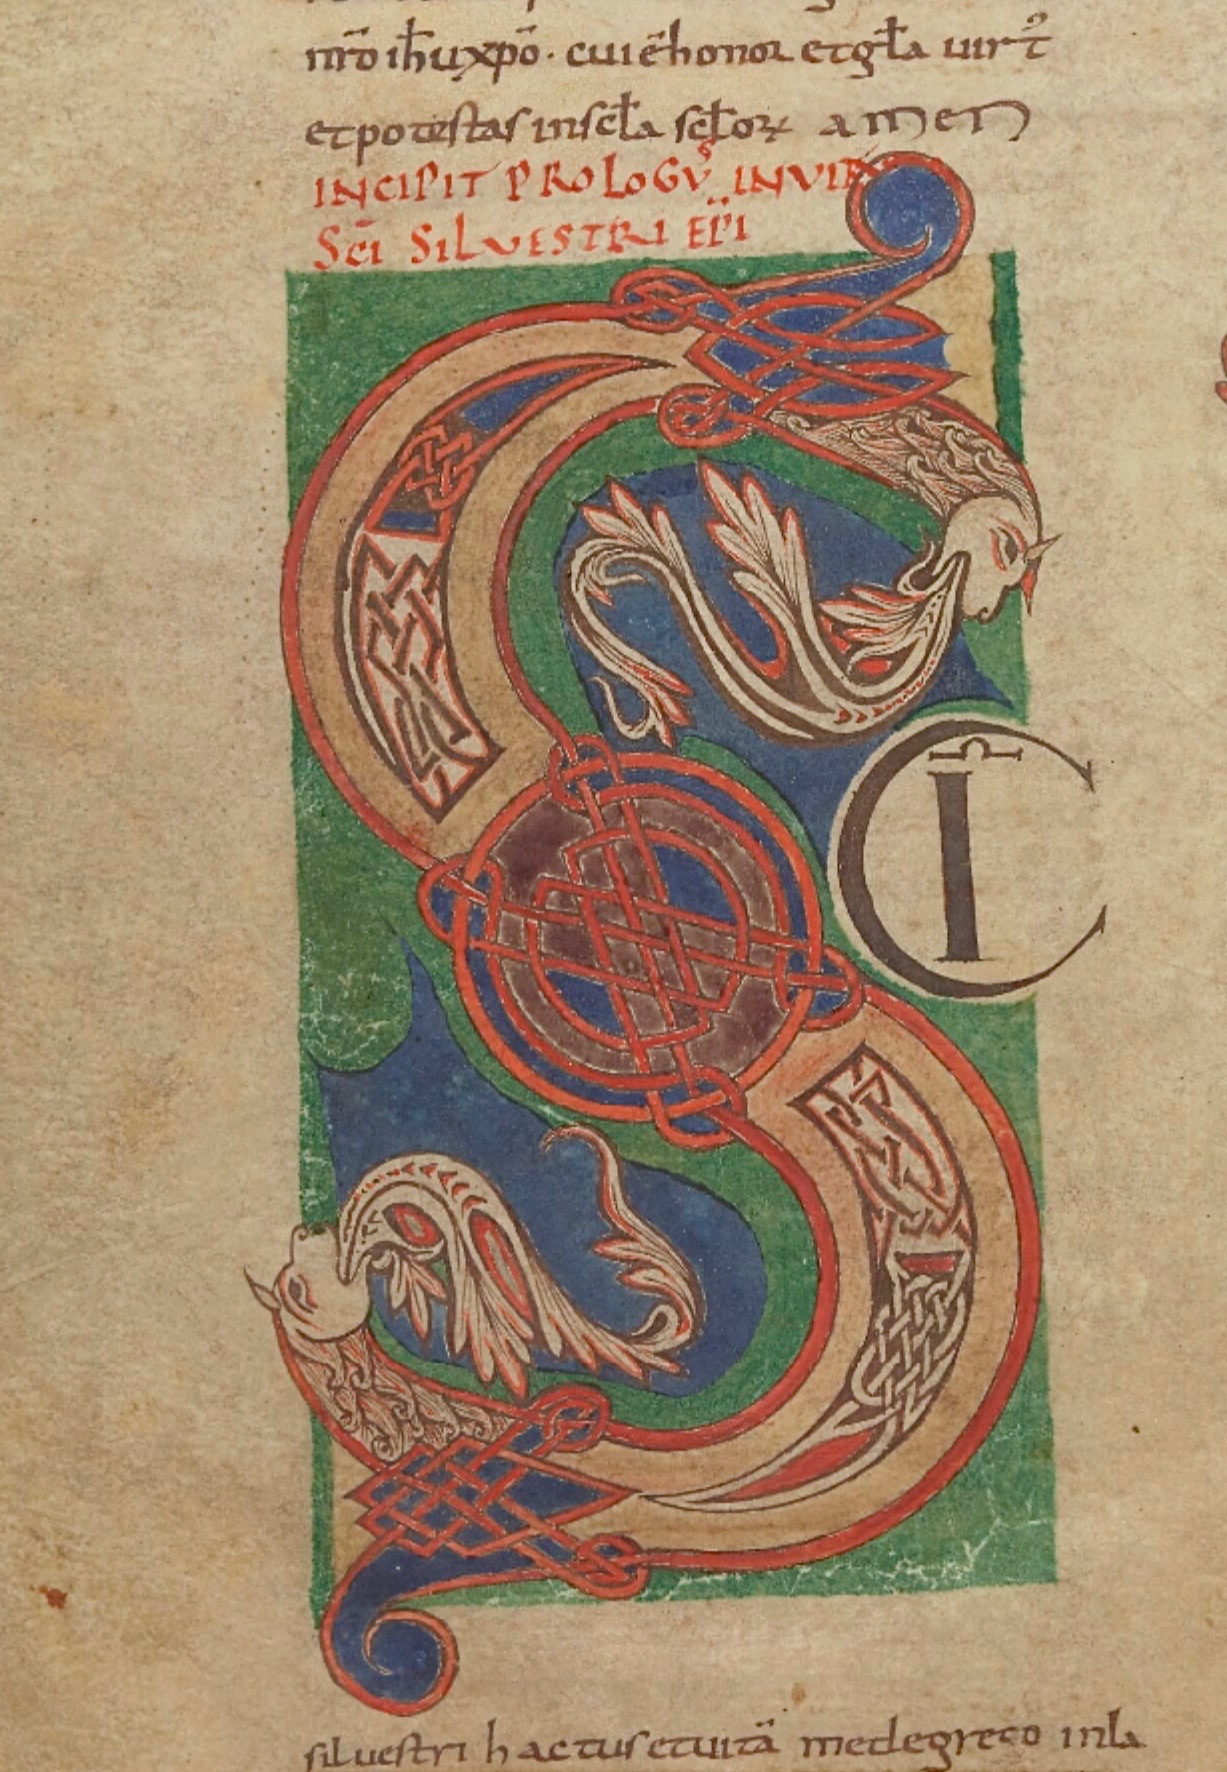 nr̄o ih̄u xp̄o · cui ē honor et gl̄a uirt᷒
et potestas in scl̄a scl̄oꝝ amen
INCIPIT PROLOGVS IN VIT
SC̄I SILVESTRI EP̄I
S C̄I
siluestri h actus et uitā me de greco in la